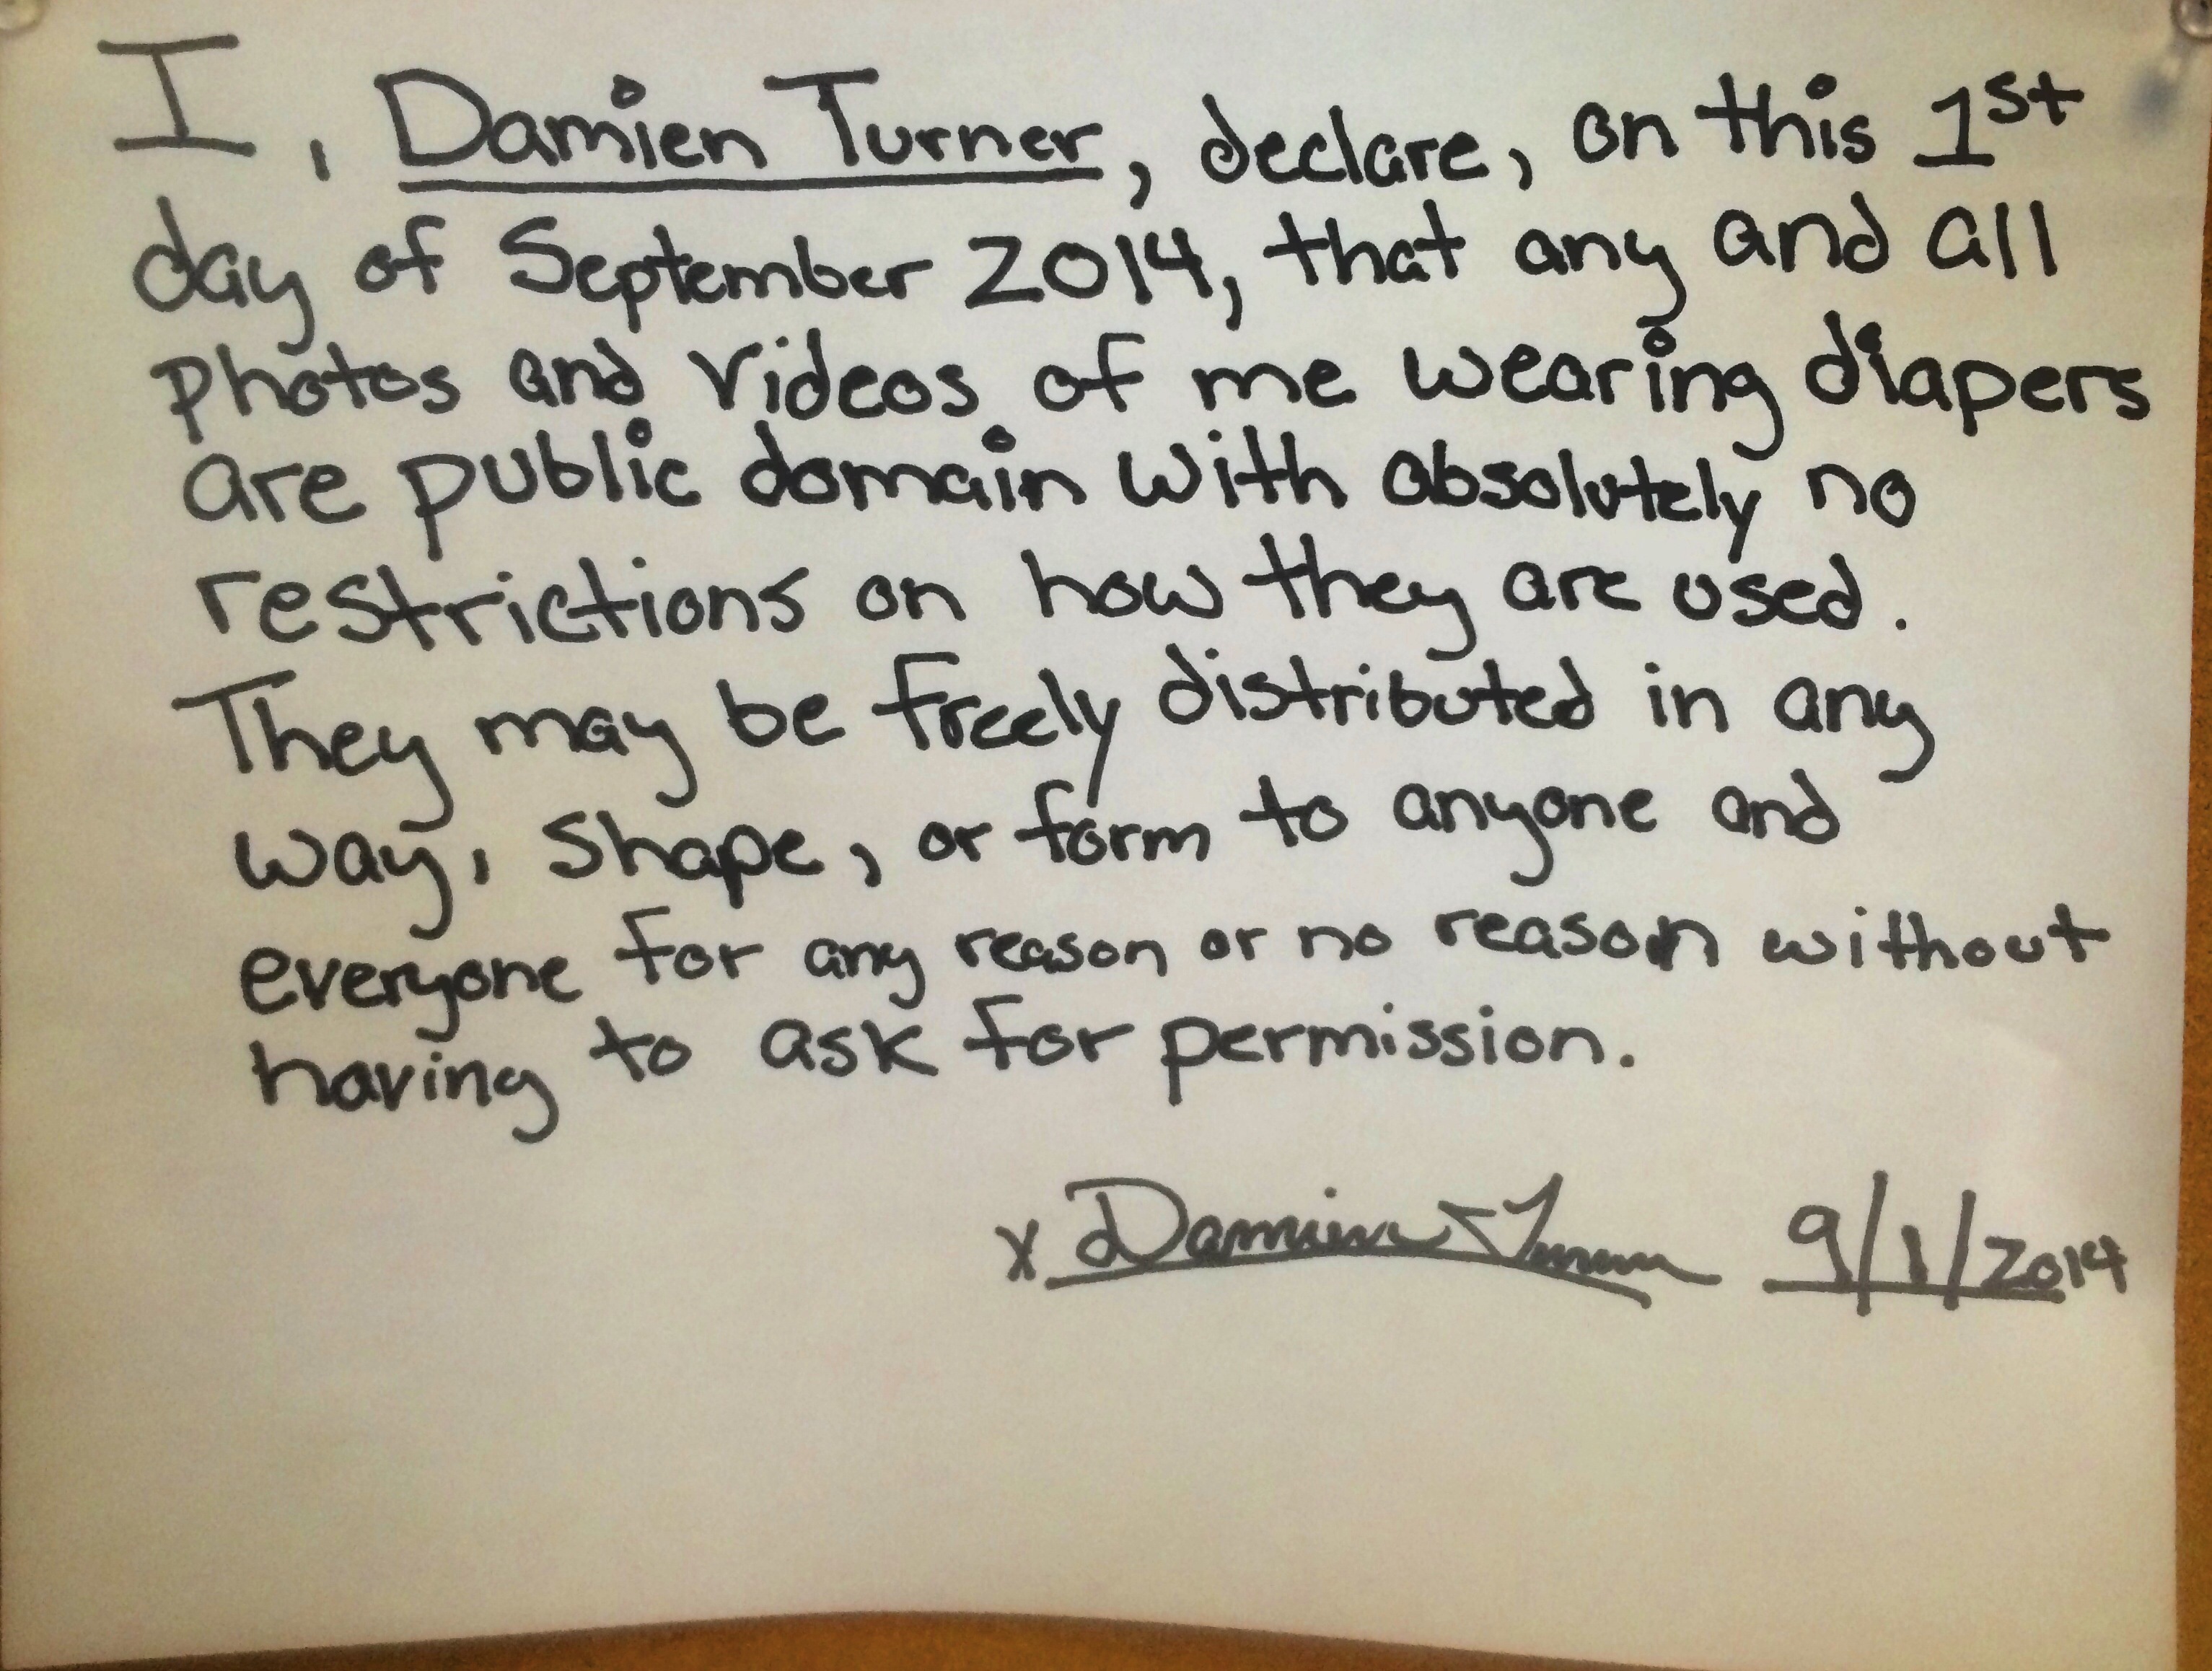 I, Damien Turner, declare, on this 1st
day of September 2014, that any and all
photos and videos of me wearing diapers
are public domain with absolutely no
restrictions on how they are used.
They may be freely distributed in any
way, shape, or form to anyone and
everyone for any reason or no reason without
having to ask for permission.
x Damien Turner 9/1/2014